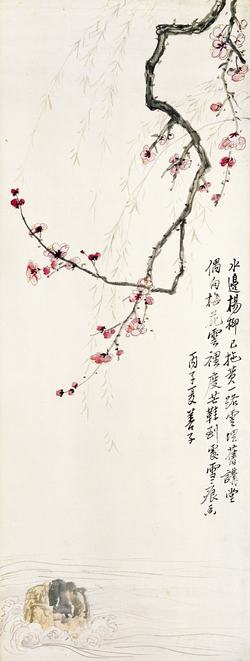 水邊楊柳已拖黃一路雲埋舊讀堂
偶向梅花雲裡度芒鞋到處雪痕香
丙子夏善子